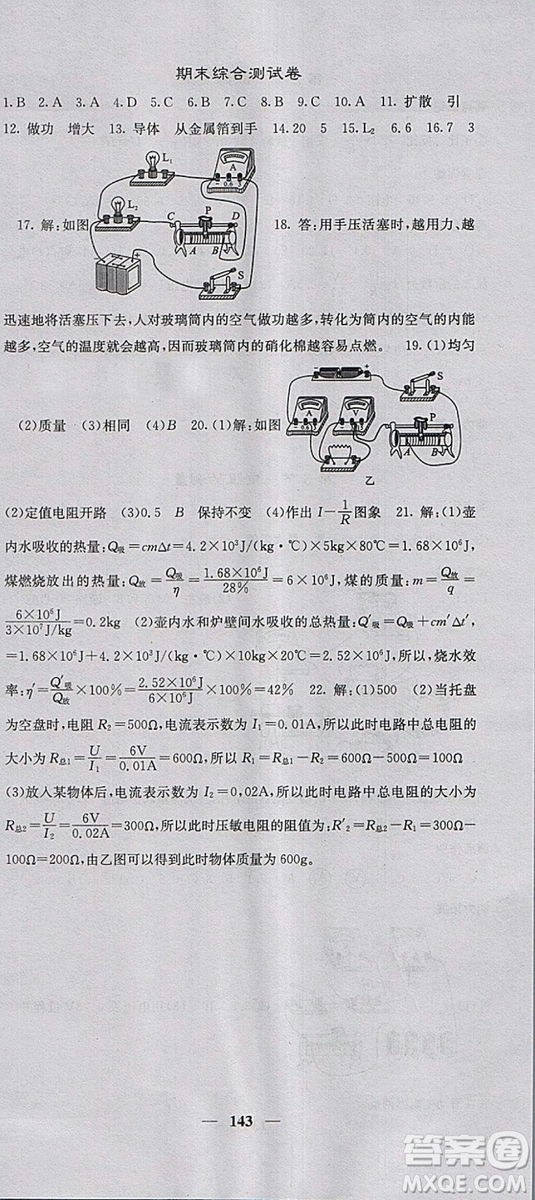 期末综合测试卷
1.B 2.A 3.A 4.D 5.C 6.B 7.D 8.B 9.A 10.A 11.扩散 引
12.做功 增大 13.导体 从金属箔到手 14.20 5 15.L₂ 6.6 16.7 3
L₁
A
-0.6
L₂
C P D
A B
S
17.解:如图
18.答:用手压活塞时,越用力、越
迅速地将活塞压下去,人对玻璃筒内的空气做功越多,转化为筒内的空气的内能
越多,空气的温度就会越高,因而玻璃筒内的硝化棉越容易点燃。 19.(1)均匀
(2)质量 (3)相同 (4)B 20.(1)解:如图
S
A V
P
A B
乙
(2)定值电阻开路 (3)0.5 B 保持不变 (4)作出 I-1/R 图象 21.解:(1)壶
内水吸收的热量:Q吸=cmΔt=4.2×10³J/(kg·℃)×5kg×80℃=1.68×10⁶J,
煤燃烧放出的热量:Q放=Q吸/η=1.68×10⁶J/28%=6×10⁶J,煤的质量:m=Q放/q=
6×10⁶J/3×10⁷J/kg=0.2kg (2)壶内水和炉壁间水吸收的总热量:Q′吸=Q吸+cm′Δt′,
=1.68×10⁶J+4.2×10³J/(kg·℃)×10kg×20℃=2.52×10⁶J,所以,烧水效
率:η′=Q′吸/Q放×100%=2.52×10⁶J/6×10⁶J×100%=42% 22.解:(1)500 (2)当托盘
为空盘时,电阻R=500Ω,电流表示数为I₁=0.01A,所以此时电路中总电阻的
大小为R总1=U/I₁=6V/0.01A=600Ω所以R=R总1-R₁=600Ω-500Ω=100Ω
(3)放入某物体后,电流表示数为I₂=0,02A,所以此时电路中总电阻的大小为
R总2=U/I₂=6V/0.02A=300Ω,所以此时压敏电阻的阻值为:R′₂=R总2-R=300Ω-
100Ω=200Ω,由乙图可以得到此时物体质量为600g。
143
答案圈
MXQE.COM